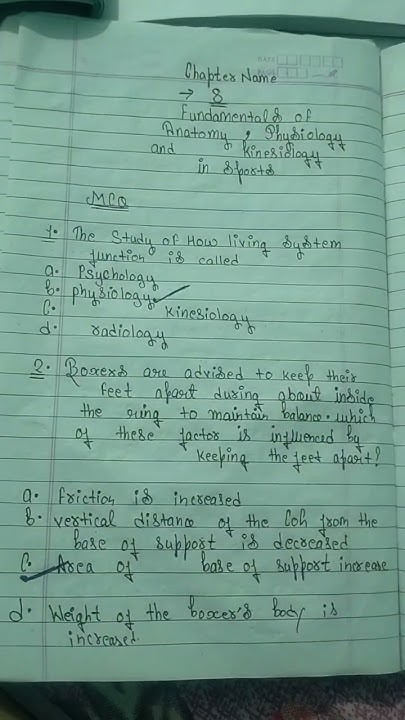 DATE
Chapter Name
→ 8
Fundamentals of
Anatomy, Physiology
and Kinesiology
in sports
MCQ
1. The Study of How living System
function is called
a. Psychology
b. physiology
c. Kinesiology
d. radiology
2. Boxers are advised to keep their
feet apart during about inside
the ring to maintain balance. which
of these factor is influenced by
keeping the feet apart?
a. friction is increased
b. vertical distance of the CoG from the
base of support is decreased
c. Area of base of support increase
d. Weight of the boxer's body is
increased.